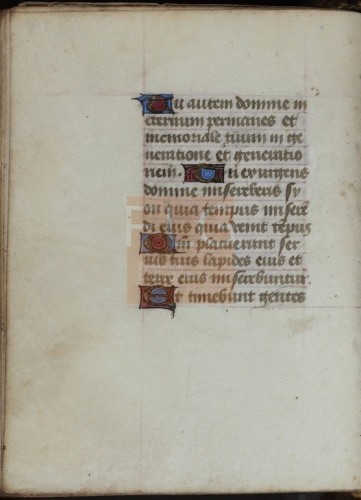 Tu autem domine in
eternum permanes et
memoriale tuum in ge
neratione et generatio
nem. Tu exurgens
domine misereberis sy
on quia tempus misere
di eius quia venit tempus
Qm placuerunt ser
uis tuis lapides eius et
terre eius miserebuntur.
Et timebunt gentes